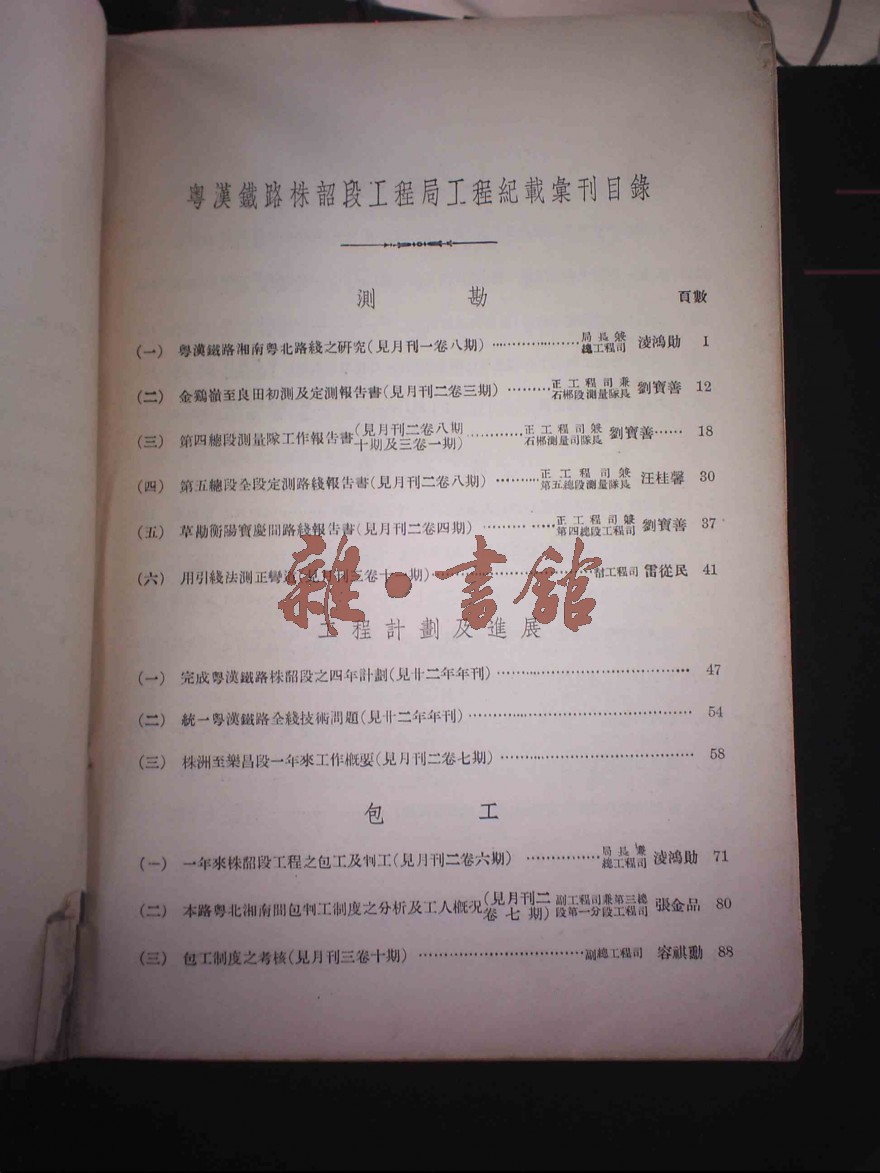 粵漢鐵路株韶段工程局工程紀載彙刊目錄
測 勘 頁數
(一) 粵漢鐵路湘南粵北路綫之研究(見月刊一卷八期) 局長兼總工程司 淩鴻勛 1
(二) 金鷄嶺至良田初測及定測報告書(見月刊二卷三期) 正工程司兼石郴段測量隊長 劉寶善 12
(三) 第四總段測量隊工作報告書(見月刊二卷八期十期及三卷一期) 正工程司兼石郴測量司隊長 劉寶善 18
(四) 第五總段全段定測路綫報告書(見月刊二卷八期) 正工程司兼第五總段測量隊長 汪桂馨 30
(五) 草勘衡陽寶慶間路綫報告書(見月刊二卷四期) 正工程司兼第四總段工程司 劉寶善 37
(六) 用引綫法測正彎道(見月刊三卷十一期) 工程司 雷從民 41
雜·書館
工程計劃及進展
(一) 完成粵漢鐵路株韶段之四年計劃(見廿二年年刊) 47
(二) 統一粵漢鐵路全綫技術問題(見廿二年年刊) 54
(三) 株洲至樂昌段一年來工作概要(見月刊二卷七期) 58
包 工
(一) 一年來株韶段工程之包工及判工(見月刊二卷六期) 局長兼總工程司 淩鴻勛 71
(二) 本路粵北湘南間包判工制度之分析及工人概況(見月刊二卷七期) 副工程司兼第三總段第一分段工程司 張金品 80
(三) 包工制度之考核(見月刊三卷十期) 副總工程司 容祺勳 88